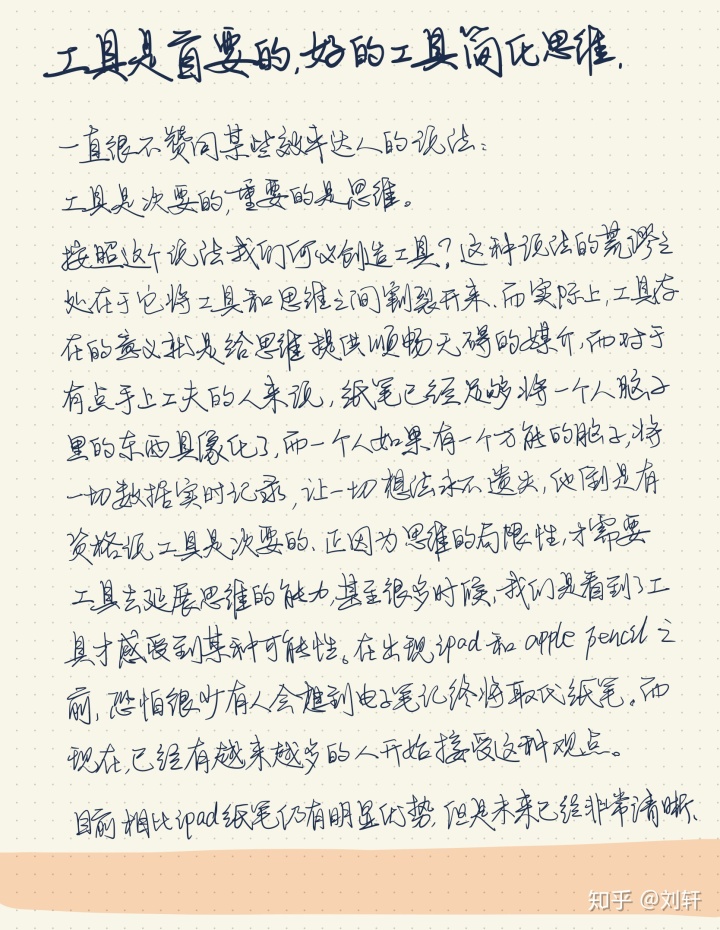 工具是首要的,好的工具简化思维.
一直很不赞同某些效率达人的说法:
工具是次要的,重要的是思维。
按照这个说法我们何必创造工具?这种说法的荒谬之
处在于它将工具和思维之间割裂开来.而实际上,工具存
在的意义就是给思维提供顺畅无碍的媒介,而对于
有点手上工夫的人来说,纸笔已经足够将一个人脑子
里的东西具像化了,而一个人如果有一个万能的脑子,将
一切数据实时记录,让一切想法永不遗失,他倒是有
资格说工具是次要的.正因为思维的局限性,才需要
工具去延展思维的能力,甚至很多时候,我们是看到了工
具才感受到某种可能性。在出现ipad和apple pencil之
前,恐怕很少有人会想到电子笔记终将取代纸笔。而
现在,已经有越来越多的人开始接受这种观点。
目前相比ipad纸笔仍有明显优势,但是未来已经非常清晰.
知乎 @刘轩